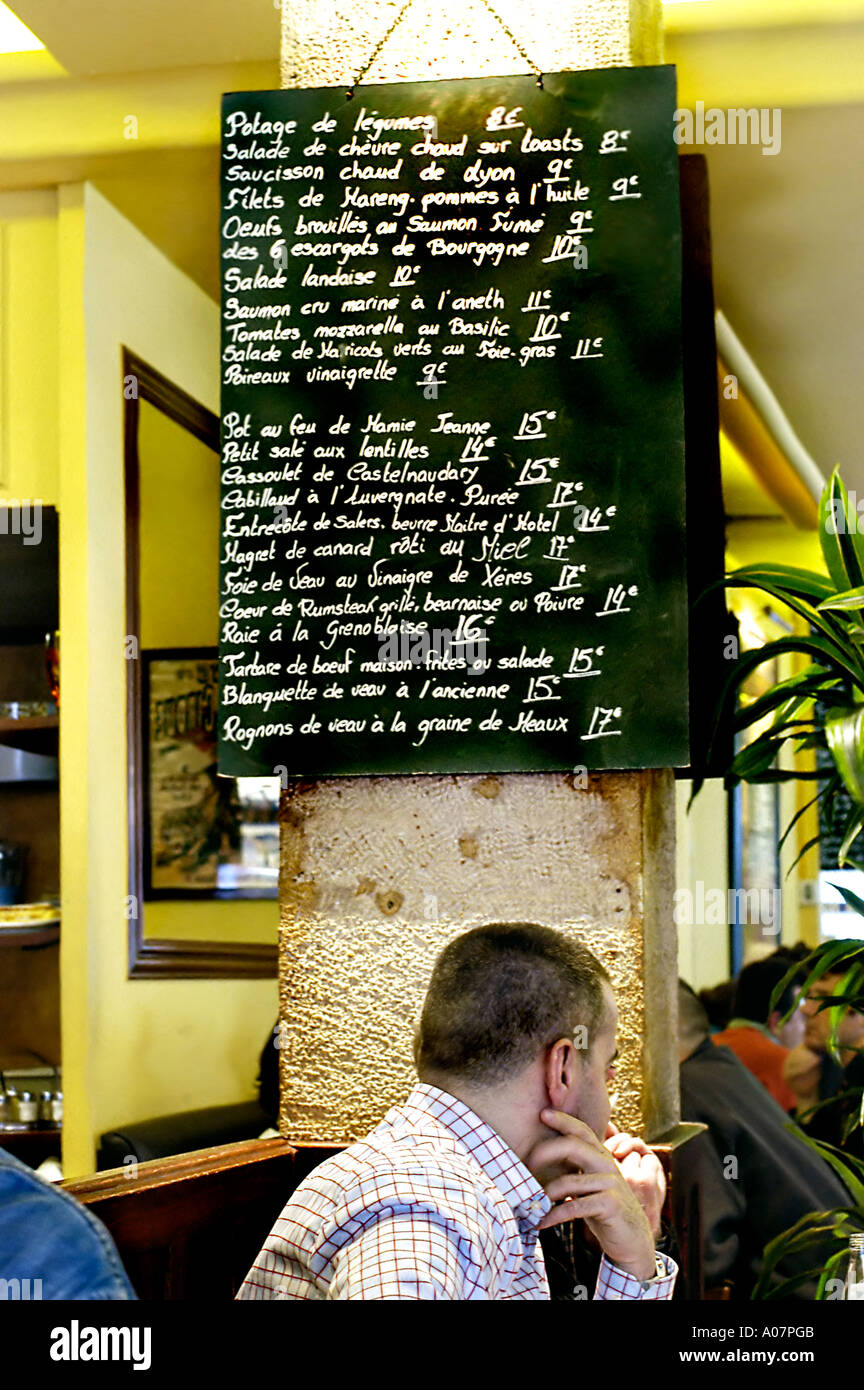 Potage de légumes 8€
Salade de chèvre chaud sur toasts 8€
Saucisson chaud de Lyon 9€
Filets de Hareng-pommes à l'huile 9€
Oeufs brouillés au Saumon Fumé 9€
des 6 escargots de Bourgogne 10€
Salade landaise 10€
Saumon cru mariné à l'aneth 11€
Tomates mozzarella au Basilic 10€
Salade de Haricots verts au Foie-gras 11€
Poireaux vinaigrette 9€
Pot au feu de Mamie Jeanne 15€
Petit salé aux lentilles 14€
Cassoulet de Castelnaudary 15€
Cabillaud à l'Auvergnate. Purée 17€
Entrecôte de Salers. beurre Maître d'Hotel 14€
Magret de canard rôti au Miel 17€
Foie de Veau au Vinaigre de Xérès 17€
Coeur de Rumsteak grillé, bearnaise ou Poivre 14€
Raie à la Grenobloise 16€
Tartare de boeuf maison. frites ou salade 15€
Blanquette de veau à l'ancienne 15€
Rognons de veau à la graine de Meaux 17€
alamy
www.alamy.com
A07PGB